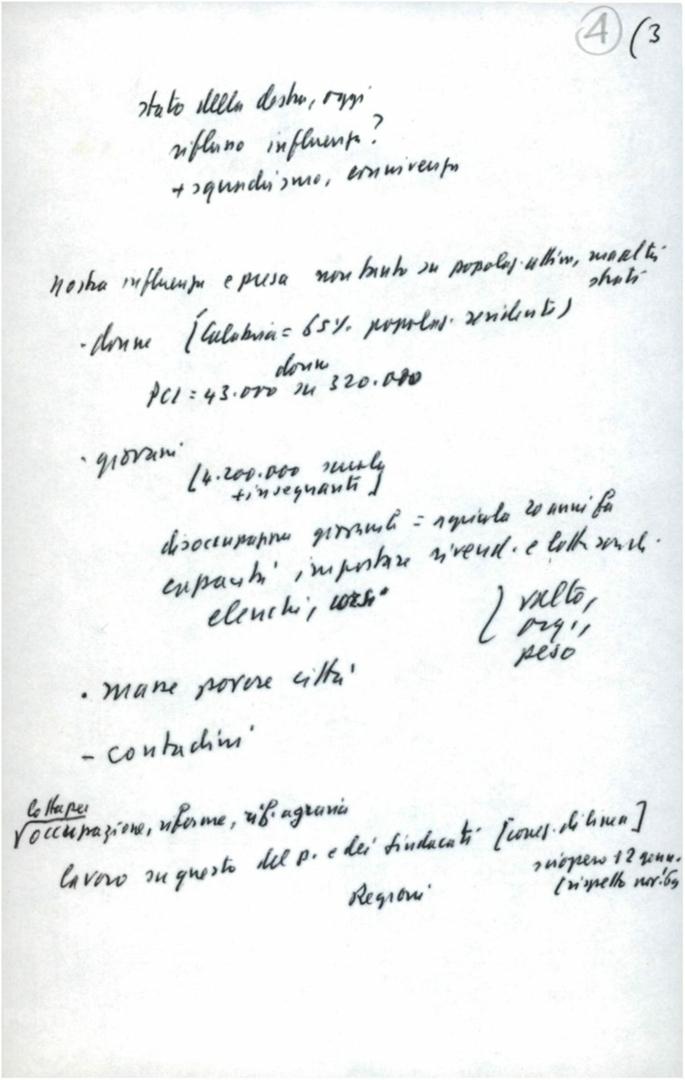 4 (3
stato della destra, oggi
riflusso influenza?
+ squadrismo, connivenza
nostra influenza e presa non tanto su popolaz. attiva, ma altri
strati
· donne (Calabria = 65% popolaz. residente)
donne
PCI = 43.000 su 320.000
· giovani
[4.200.000 scuola
+ insegnanti]
disoccupazione giovanile = agricola 20 anni fa
capacità impostare rivend. e lotte
elenchi, corsi
( volto,
org.,
peso
· masse povere città
- contadini
lotta per
occupazione, riforme, rif. agraria
lavoro su questo del p. e dei sindacati [conseg. di linea]
sciopero 12 genn.
(rispetto nov. 69
Regioni